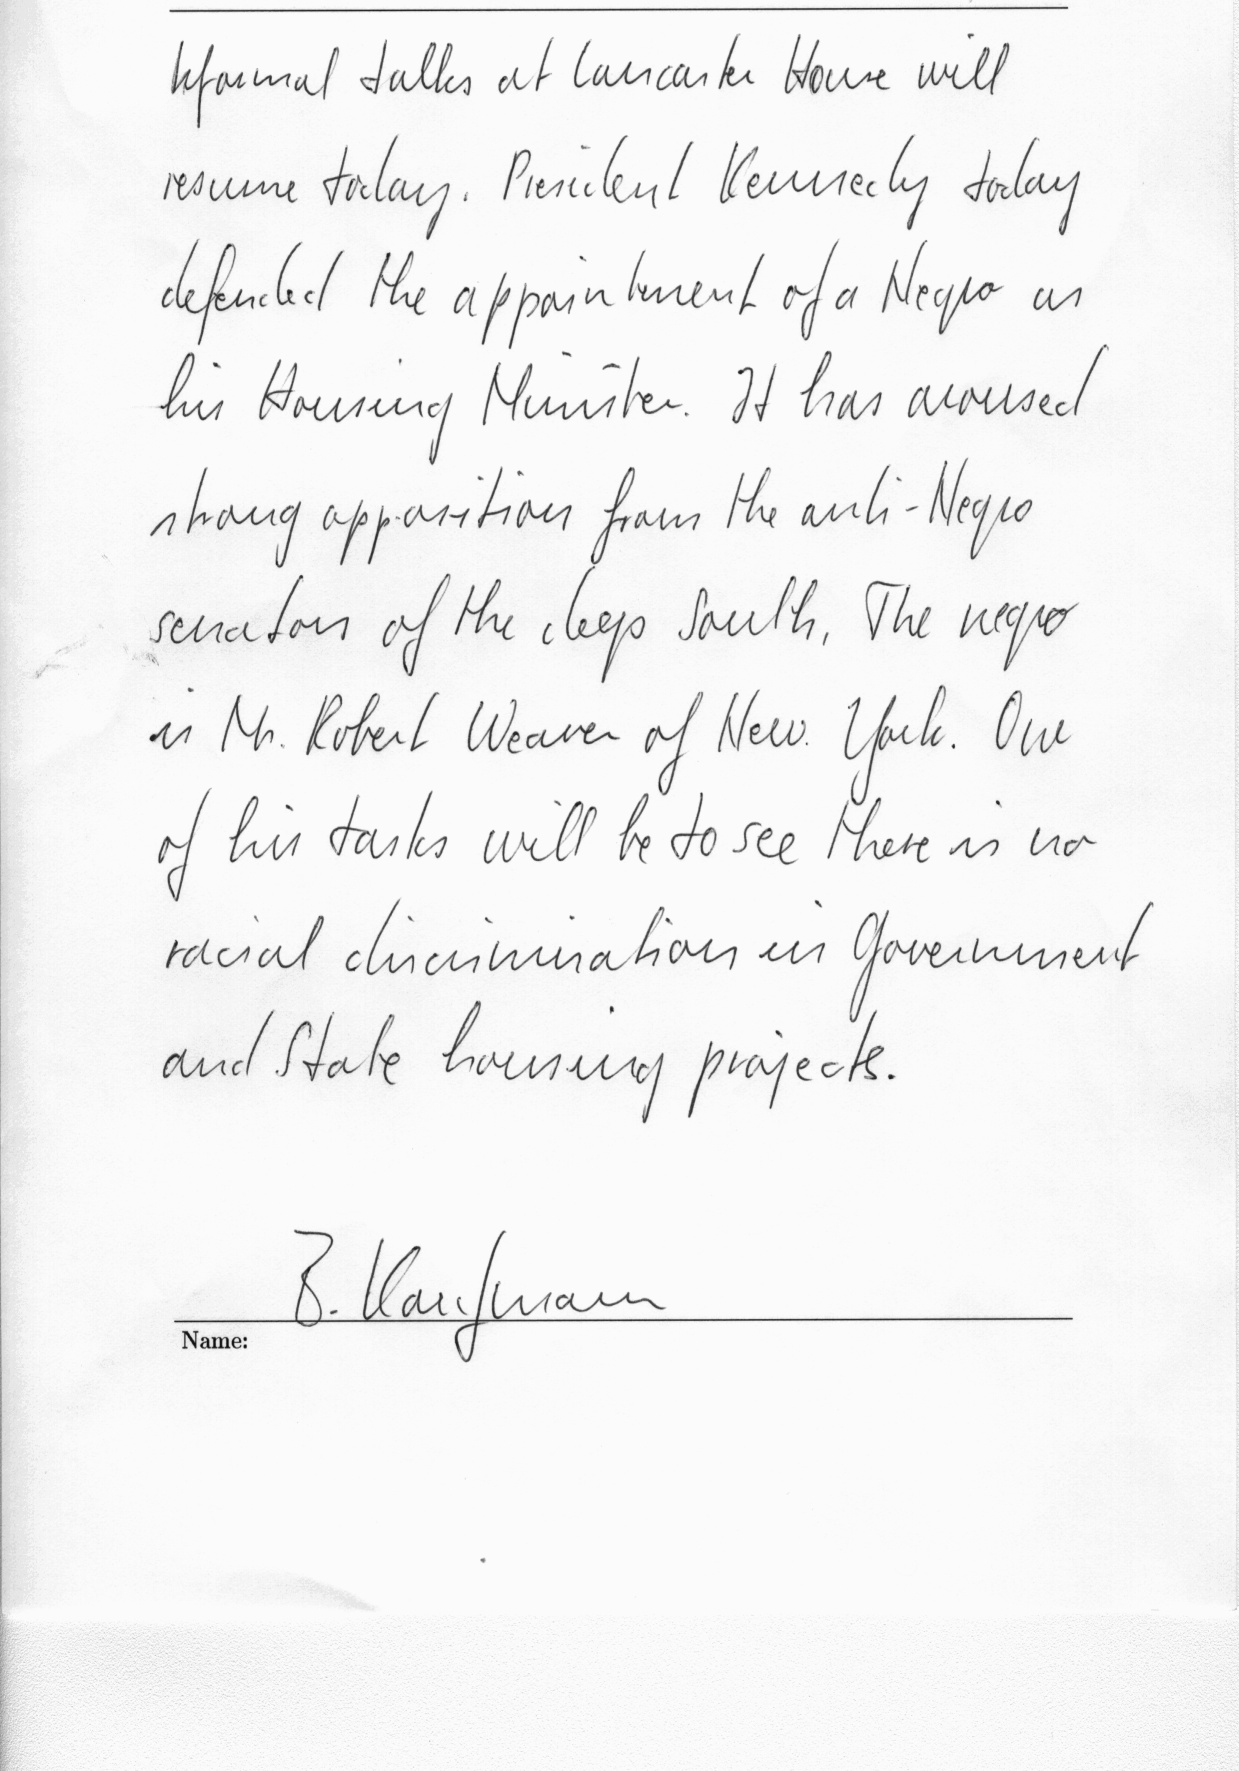 Informal talks at Lancaster House will
resume today. President Kennedy today
defended the appointment of a Negro as
his Housing Minister. It has aroused
strong opposition from the anti-Negro
senators of the deep South. The negro
is Mr. Robert Weaver of New York. One
of his tasks will be to see there is no
racial discrimination in Government
and State housing projects.
B. Kaufmann
Name: